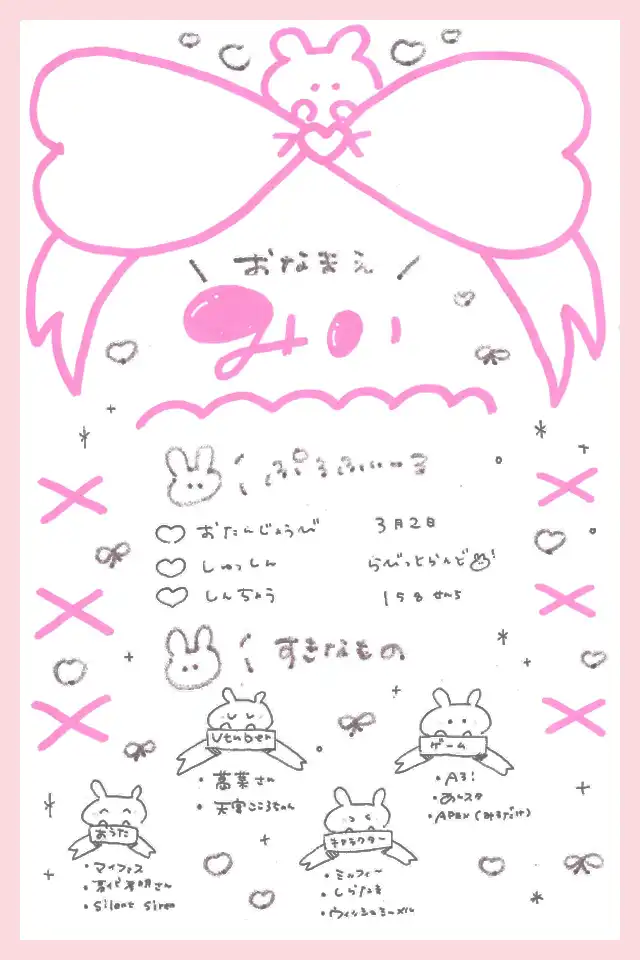 おなまえ
みい
ぷろふぃーる
おたんじょうび 3月2日
しゅっしん らびっとらんど
しんちょう 158せんち
すきなもの
Vtuber
・葛葉さん
・天宮こころちゃん
ゲーム
・A3!
・あんスタ
・APEX(みるだけ)
おうた
・マイファス
・さん
・Silent Siren
キャラクター
・ミッフィー
・しらたま
・ウィッシュミーメル